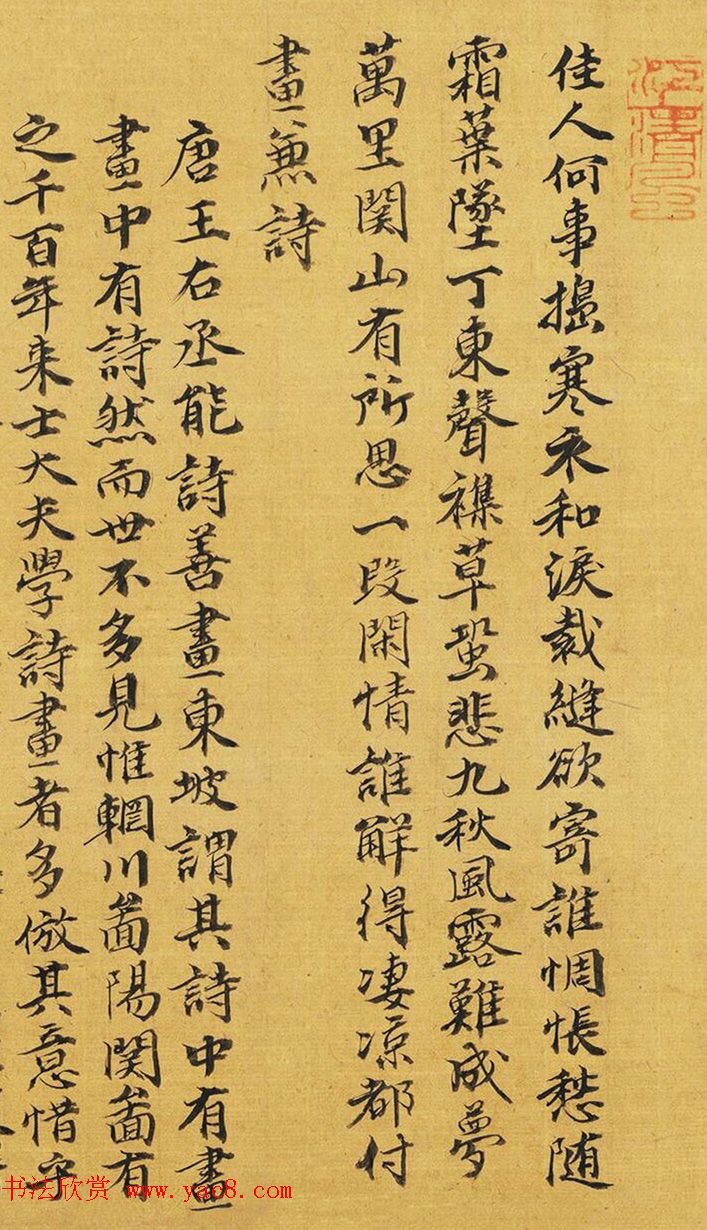 佳人何事搗寒衣和淚裁縫欲寄誰惆悵愁随
霜葉墜丁東聲襍草蛩悲九秋風露難成夢
萬里関山有所思一段閑情誰解得凄凉都付
畫兼詩
唐王右丞能詩善畫東坡謂其詩中有畫
畫中有詩然而世不多見惟輞川啚陽関啚有
之千百年来士大夫學詩畫者多倣其意惜乎
书法欣赏 www.yac8.com